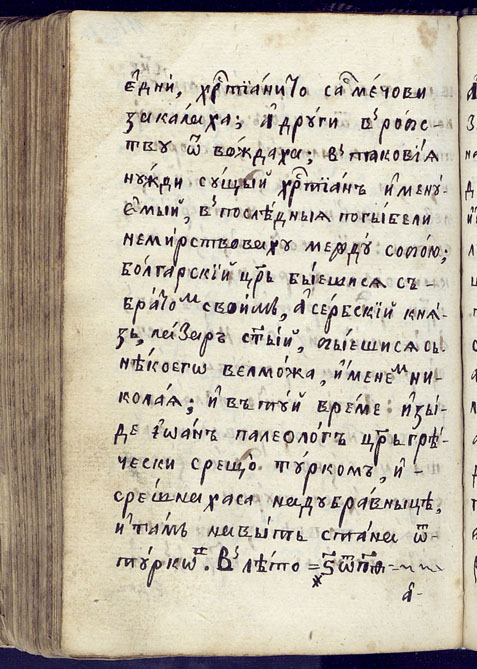 є҆дни, хрⷭ҇тїѧничⷪ҇ саⷭ҇ ме́чови
закала́ха; а҆ дру́ги в̾ ро́пс-
тву ѿ во́ждаха; в̾ таковїѧ
ну́жди су́щый хрⷭ҇тїа́нъ и҆мену́-
є҆мый, в̾ послѣ́дныѧ погы́бели
немирствоваху межд̾у собою;
бо́лгарскїй цр҃ь бы́ешисѧ съ-
бра́тїоⷨ свои́мъ, а҆ се́рбскїй кнѧ́-
зь, ла́заръ ст҃ы́й, быешисѧ съ
нѣ́коегѡ велмо́жа, и҆менеⷨ ни-
кола́ѧ; и҆ в̾ ту́й вре́ме и҆зы́-
де їѡа́нъ палеоло́гъ цр҃ь грѣ́-
чески срещо ту́ркомъ, и҆-
сре́шнахаса на дꙋбра́вницѣ,
и҆ та́мъ на бы́тъ ста́на ѿ-
ту́ркѡⷡ. В̾ лѣ́то =҂ѕ҃ѡ҃п҃ѳ
а҆-